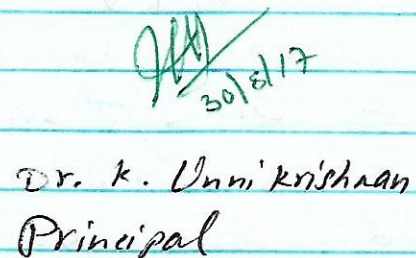 30/8/17
Dr. K. Unnikrishnan
Principal